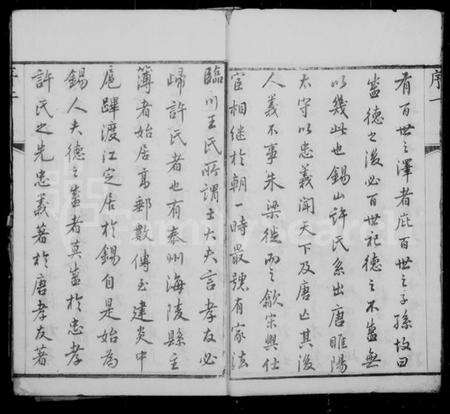 序一
有百世之澤者庇百世之子孫故曰
盛德之後必百世祀德之不盛無
以幾此也錫山許氏系出唐睢陽
太守以忠義聞天下及唐亡其後
人義不事朱梁徙而之歙宋興仕
宦相继於朝一時最號有家法
臨川王氏所謂士大夫言孝友必
歸許氏者也有泰州海陵縣主
薄者始居髙郵數傳至建炎中
扈蹕渡江定居於錫自是始為
錫人夫德之盛者莫盛於忠孝
許氏之先忠義著於唐孝友著